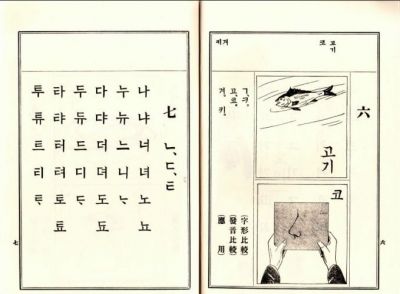 六
고기
코
ㄱ, ㅋ. (字形比較)
고, 코. (發音比較)
거, 키. (應用)
코 고기
六
七 ㄴ, ㄷ, ㅌ
나 냐 너 녀 노 뇨
누 뉴 느 니 ᄂᆞ
다 댜 더 뎌 도 됴
두 듀 드 디 ᄃᆞ
타 탸 터 텨 토 툐
투 튜 트 티 ᄐᆞ
七